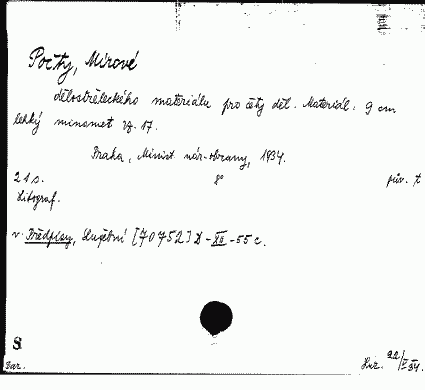 Počty, Mírové
dělostřeleckého materiálu pro čety děl. Materiál: 9 cm
lehký minomet vz. 17.
Praha, Minist. nár. obrany, 1934.
21 s. 8° pův. t
Litograf.
v. Předpisy, Služební [70752] D-XII-55 c.
S
Dar.
Liz. 22/I 34.